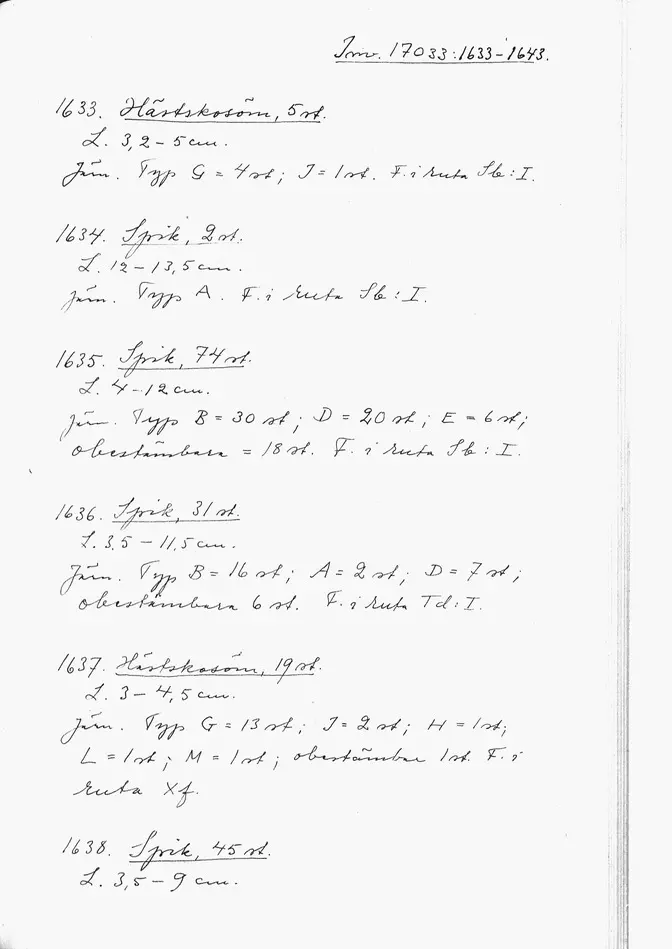 Inv. 17033:1633-1643.
1633. Hästskosöm, 5 st.
L. 3,2-5 cm.
Järn. Typ G = 4 st; J = 1 st. F. i ruta Sb:I.
1634. Spik, 2 st.
L. 12-13,5 cm.
Järn. Typ A. F. i ruta Sb:I.
1635. Spik, 74 st.
L. 4-12 cm.
Järn. Typ B = 30 st; D = 20 st; E = 6 st;
obestämbara = 18 st. F. i ruta Sb:I.
1636. Spik, 31 st.
L. 3,5-11,5 cm.
Järn. Typ B = 16 st; A = 2 st; D = 7 st;
obestämbara 6 st. F. i ruta Td:I.
1637. Hästskosöm, 19 st.
L. 3-4,5 cm.
Järn. Typ G = 13 st; J = 2 st; H = 1 st;
L = 1 st; M = 1 st; obestämbar 1 st. F. i
ruta Xf.
1638. Spik, 45 st.
L. 3,5-9 cm.